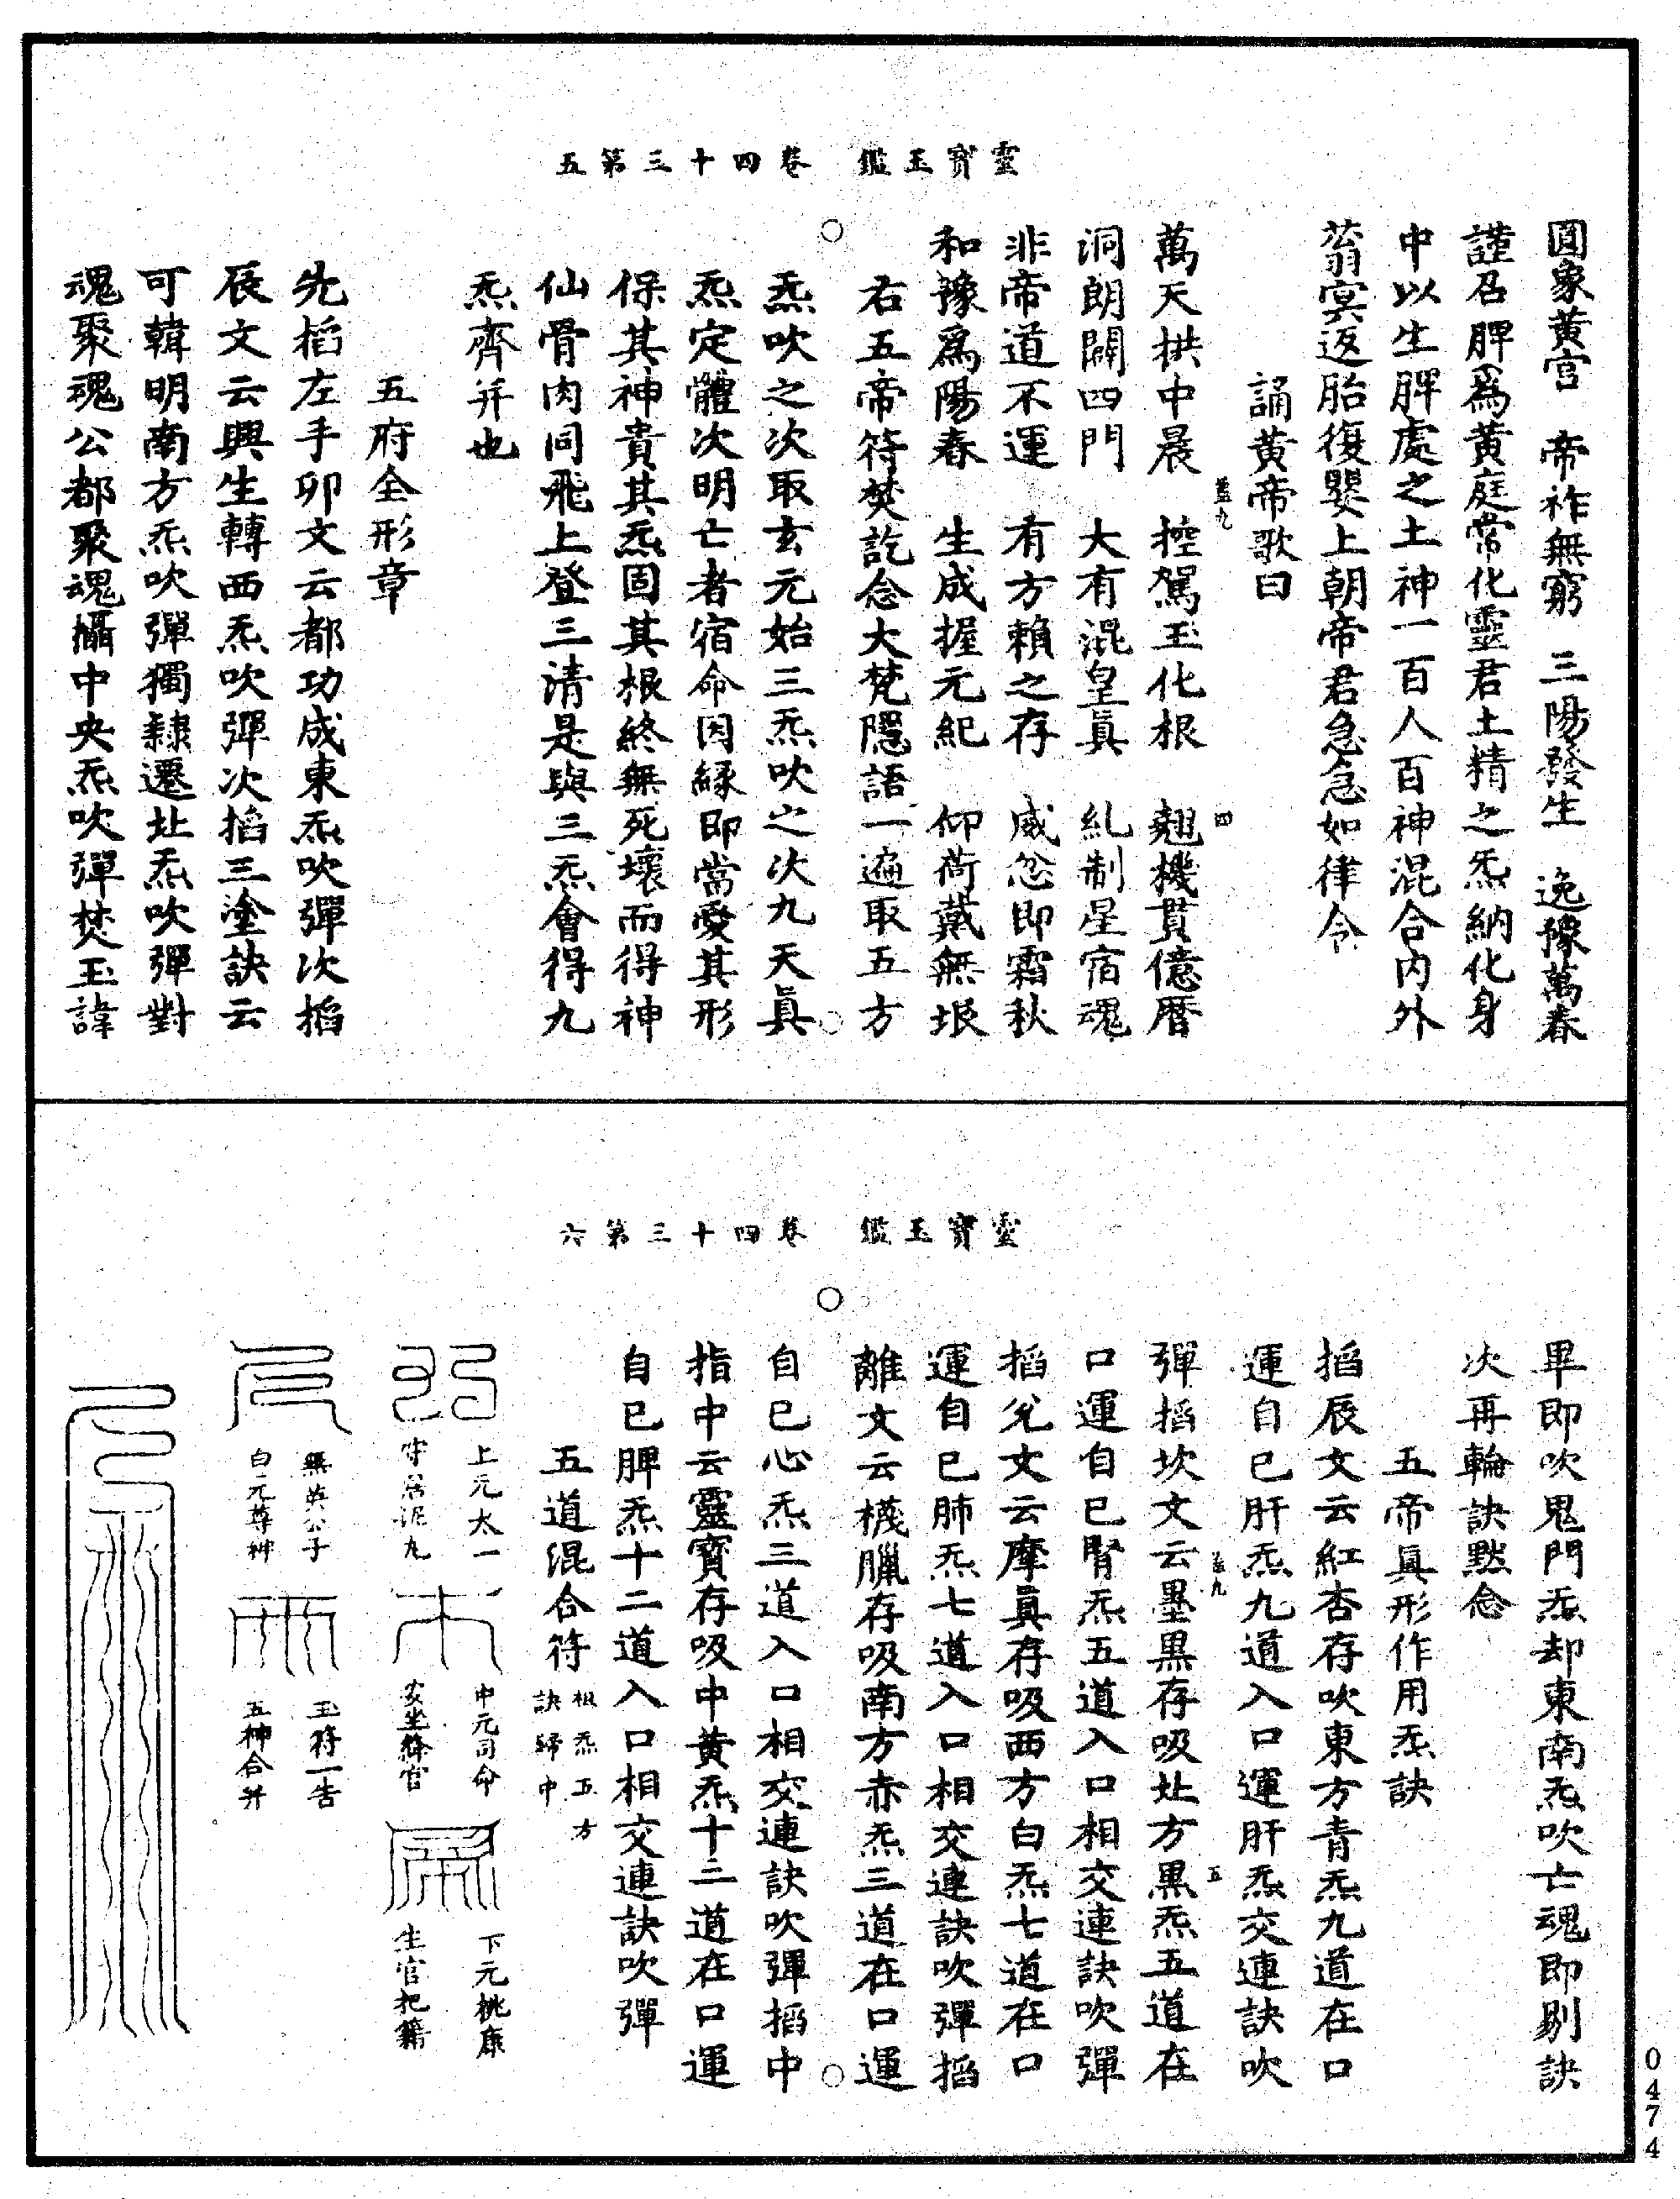 靈寶玉鑑　卷四十三第五
圓象黃宫　帝祚無窮　三陽發生　逸豫萬春
謹召脾爲黃庭常化靈君土精之炁納化身
中以生脾處之土神一百人百神混合内外
蓊冥返胎復嬰上朝帝君急急如律令
誦黃帝歌曰
萬天拱中晨　控駕玉化根　翹機貫億曆
洞朗闢四門　大有混皇眞　糺制星宿魂
非帝道不運　有方賴之存　威忿即霜秋
和豫爲陽春　生成握元紀　仰荷戴無垠
右五帝符焚訖念大梵隱語一遍取五方
炁吹之次取玄元始三炁吹之次九天眞
炁定體次明亡者宿命因緣即當愛其形
保其神貴其炁固其根終無死壞而得神
仙骨肉同飛上登三清是與三炁會得九
炁齊并也
五府全形章
先搯左手卯文云都功成東炁吹彈次搯
辰文云興生轉西炁吹彈次搯三塗訣云
可韓明南方炁吹彈獨隸遷北炁吹彈對
魂聚魂公都聚魂攝中央炁吹彈焚玉諱
靈寶玉鑑　卷四十三第六
畢即吹鬼門炁却東南炁吹亡魂即剔訣
次再輪訣默念
五帝眞形作用炁訣
搯辰文云紅杏存吹東方青炁九道在口
運自巳肝炁九道入口運肝炁交連訣吹
彈搯坎文云墨黑存吸北方黑炁五道在
口運自巳腎炁五道入口相交連訣吹彈
搯兊文云摩眞存吸西方白炁七道在口
運自巳肺炁七道入口相交連訣吹彈搯
離文云櫗臘存吸南方赤炁三道在口運
自巳心炁三道入口相交連訣吹彈搯中
指中云靈寶存吸中黃炁十二道在口運
自巳脾炁十二道入口相交連訣吹彈
五道混合符　根炁五方訣歸中
上元太一
守居泥丸
中元司命
安坐絳宫
下元桃康
生宫把籍
無英公子
白元尊神
玉符一告
五神合并
0474